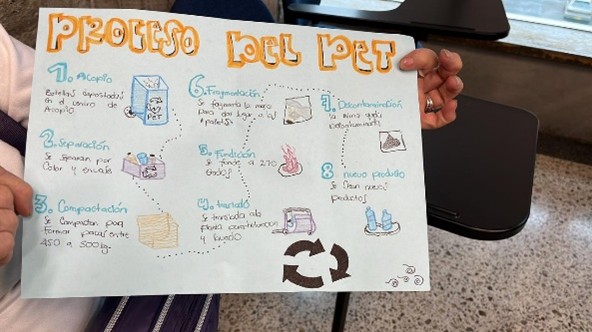 PROCESO DEL PET
1. Acopio
Botellas depositadas
en el centro de
Acopio.
PET
2. Separación
Se separan por
Color y envase
3. Compactación
Se Compactan para
formar pacas entre
450 a 500kg.
4. traslado
Se traslada a la
planta
y lavado
5. Fundición
Se funde a 270
Grados
6. Fragmentación
Se fragmenta la
para dar lugar a
7. Descontaminación
la
descontaminada
8. nuevo producto
Se Crean nuevos
productos